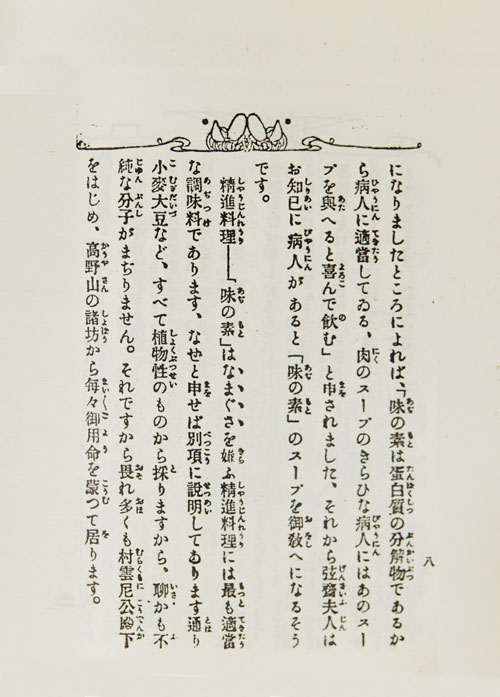 になりましたところによれば、「味の素は蛋白質の分解物であるか
ら病人に適當してゐる、肉のスープのきらひな病人にはあのスー
プを與へると喜んで飮む」と申されました、それから弦齋夫人は
お知巳に病人があると「味の素」のスープを御敎へになるそう
です。
精進料理――「味の素」はなまぐさを嫌ふ精進料理には最も適當
な調味料であります、なぜと申せば別項に説明してあります通り
小麥大豆など、すべて植物性のものから採りますから、聊かも不
純な分子がまぢりません。それですから畏れ多くも村雲尼公殿下
をはじめ、高野山の諸坊から每々御用命を蒙つて居ります。
八